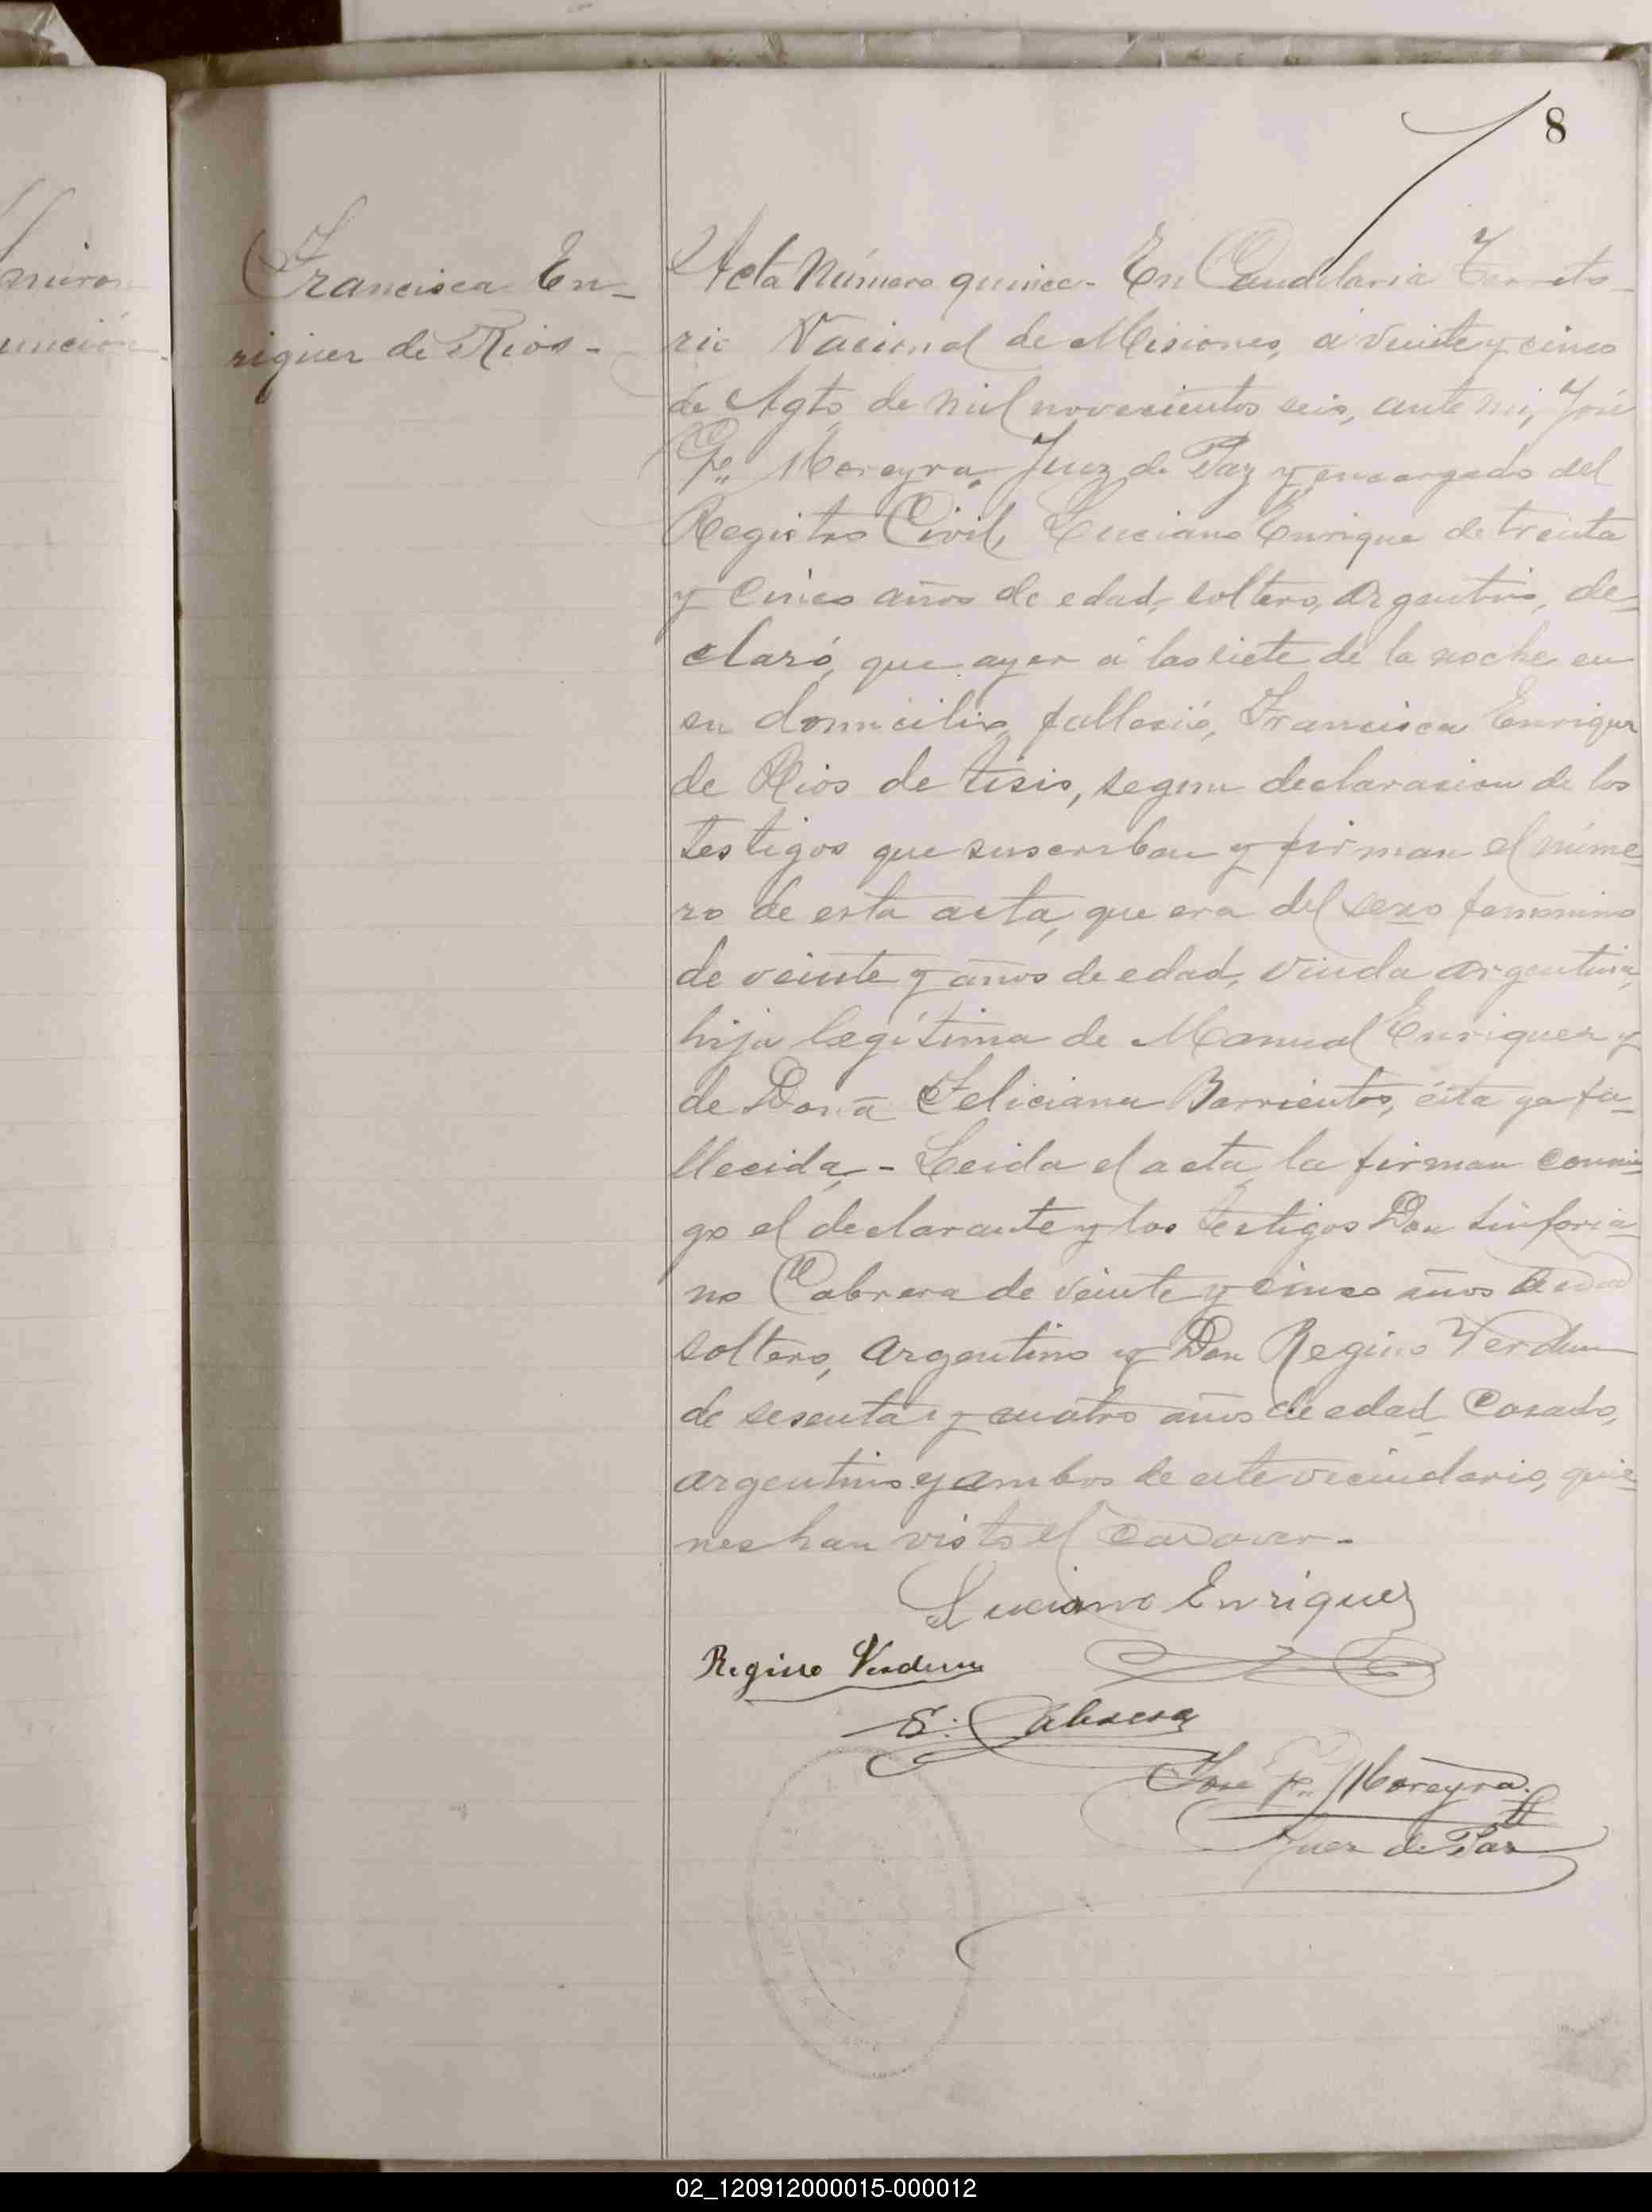 8
Francisca En-
riquez de Rios -
Acta Número quince - En Candelaria Territo-
rio Nacional de Misiones, á veinte y cinco
de Agto de mil novecientos seis, ante mi, José
Moreyra, Juez de Paz y encargado del
Registro Civil, Luciano Enrique de treinta
y cinco años de edad, soltero, argentino, de=
claró, que ayer á las siete de la noche en
su domicilio, falleció, Francisca Enriquez
de Rios de tisis, segun declaracion de los
testigos que suscriben y firman al núme=
ro de esta acta, que era del sexo femenino
de veinte y años de edad, viuda argentina,
hija legítima de Manuel Enriquez y
de Doña Feliciana Barrientos, ésta ya fa=
llecida, - Leida el acta, la firman conmi=
go el declarante y los testigos Don Sinforia=
no Cabrera de veinte y cinco años de edad
soltero, argentino y Don Regino Verdun
de sesenta y cuatro años de edad, Casado,
argentino y ambos de este vecindario, quie=
nes han visto el cadaver -
Luciano Enriquez
Regino Verdun
S. Cabrera
José Moreyra
Juez de Paz
02_120912000015-000012